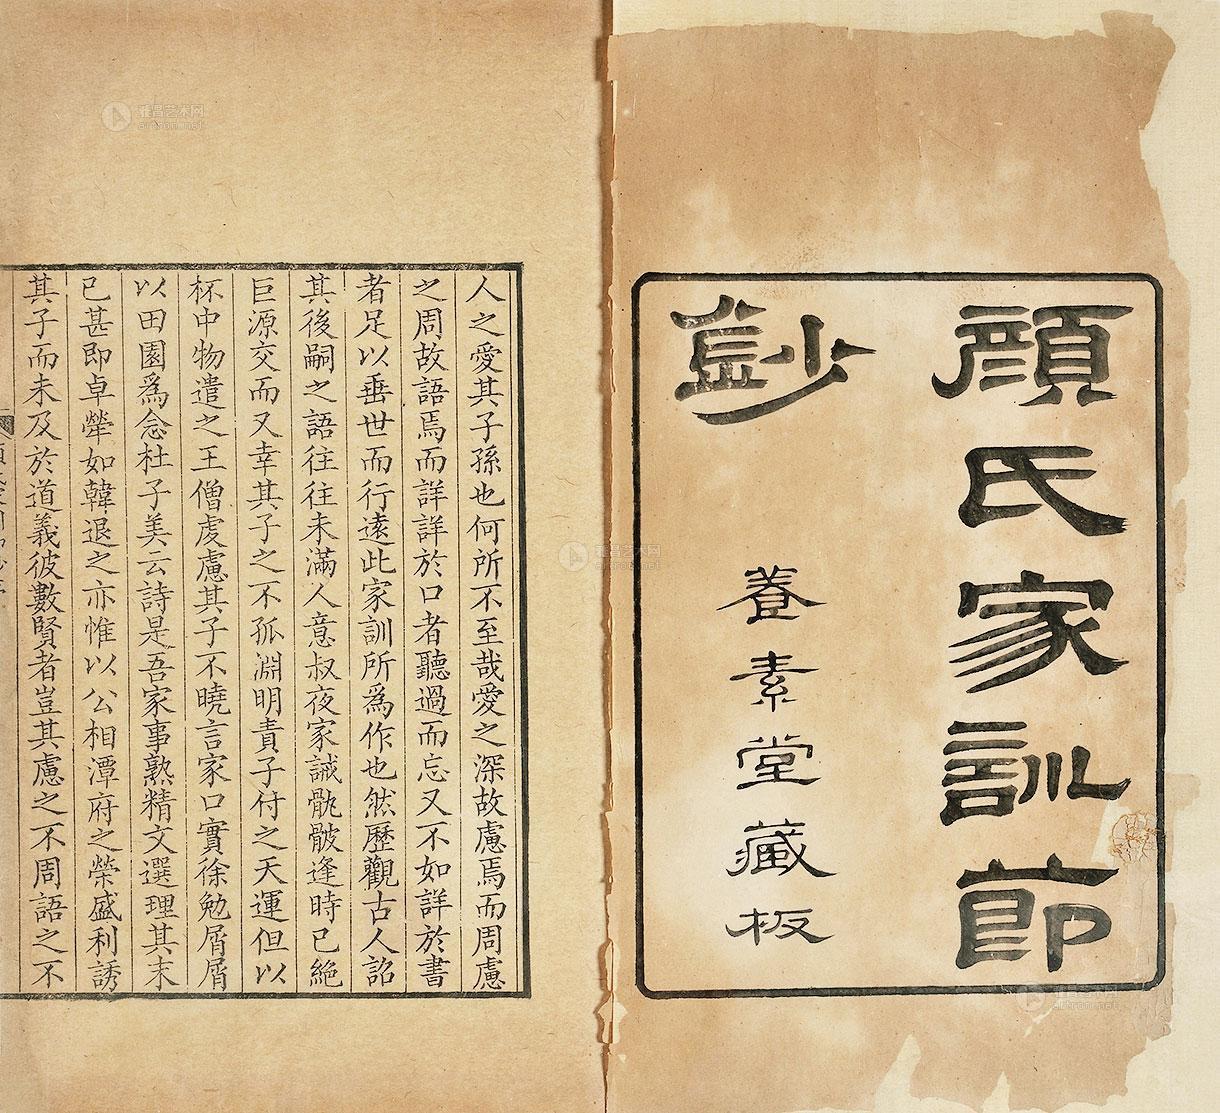 顏氏家訓節
鈔
養素堂藏板
人之愛其子孫也何所不至哉愛之深故慮焉而周慮
之周故語焉而詳詳於口者聽過而忘又不如詳於書
者足以垂世而行遠此家訓所爲作也然歷觀古人詒
其後嗣之語往往未滿人意叔夜家誡骩骳逢時已絕
巨源交而又幸其子之不孤淵明責子付之天運但以
杯中物遣之王僧虔慮其子不曉言家口實徐勉屑屑
以田園爲念杜子美云詩是吾家事熟精文選理其末
已甚即卓犖如韓退之亦惟以公相潭府之榮盛利誘
其子而未及於道義彼數賢者豈其慮之不周語之不
雅昌艺术网
artron.net
雅昌艺术网
artron.net
雅昌艺术网
artron.net